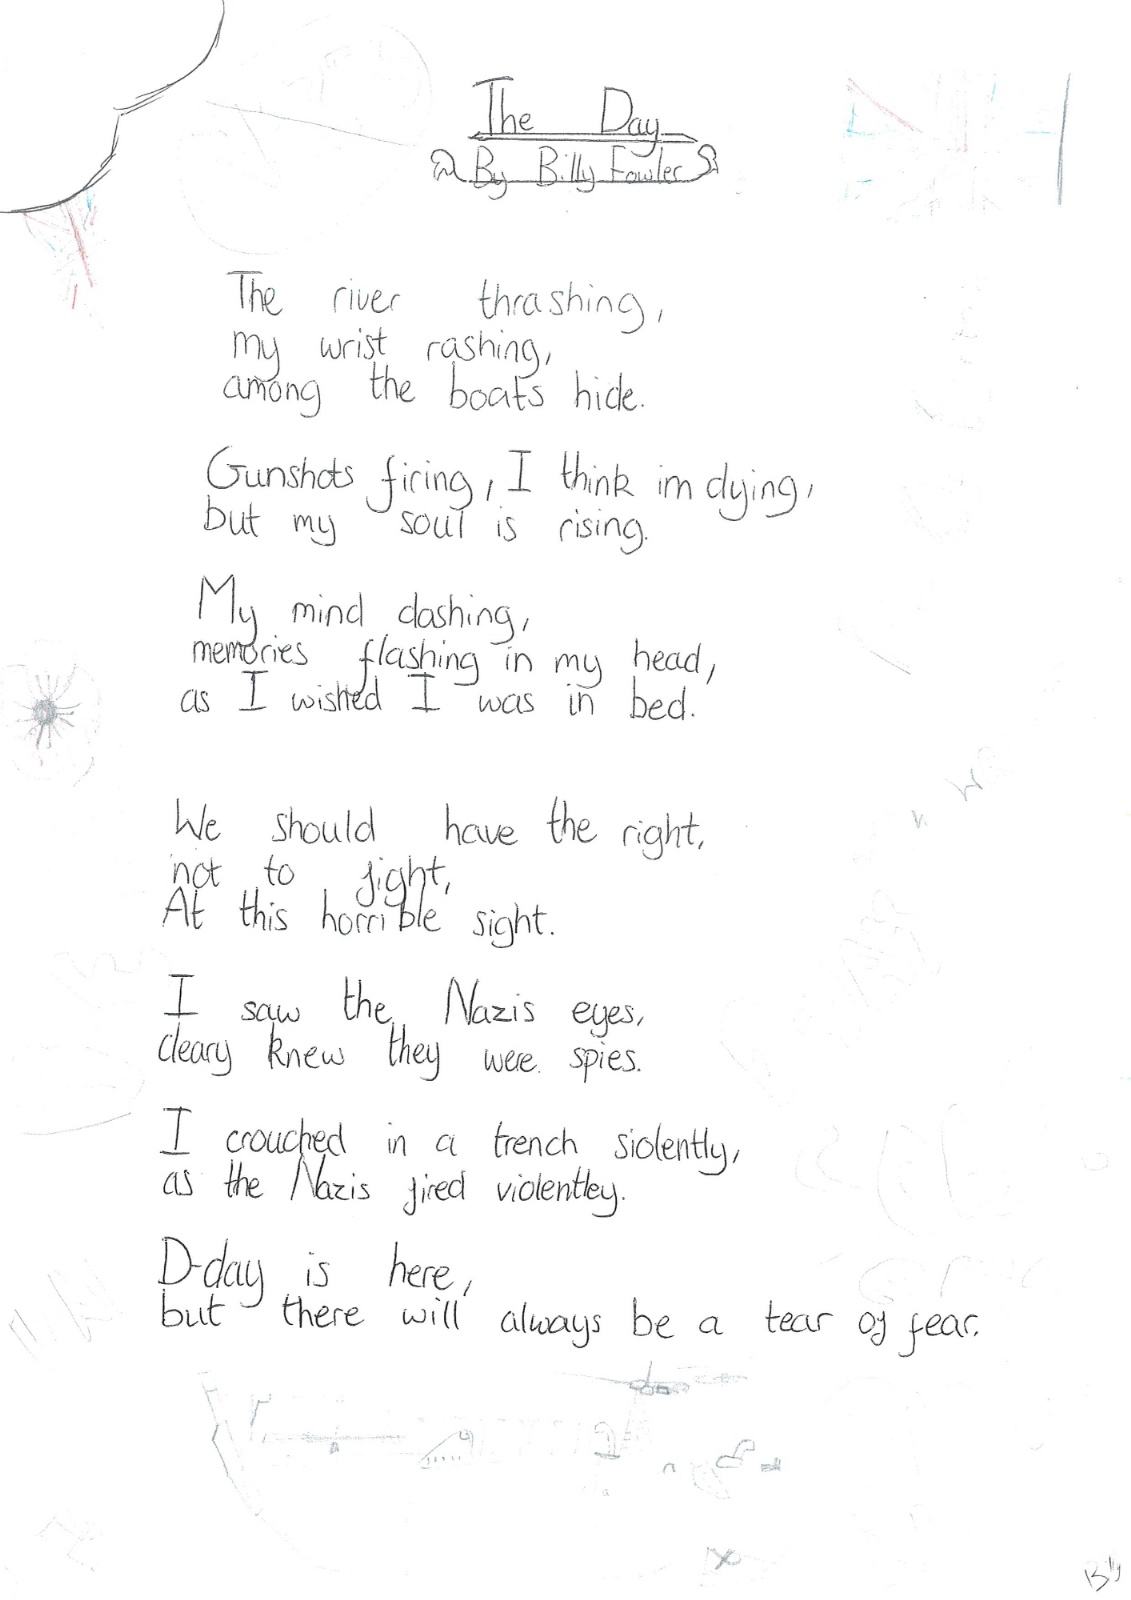 The Day
By Billy Fowler
The river thrashing,
my wrist rashing,
among the boats hide.
Gunshots firing, I think im dying,
but my soul is rising.
My mind dashing,
memories flashing in my head,
as I wished I was in bed.
We should have the right,
not to fight,
At this horrible sight.
I saw the Nazis eyes,
cleary knew they were spies.
I crouched in a trench siolently,
as the Nazis fired violentley.
D-day is here,
but there will always be a tear of fear.
Billy